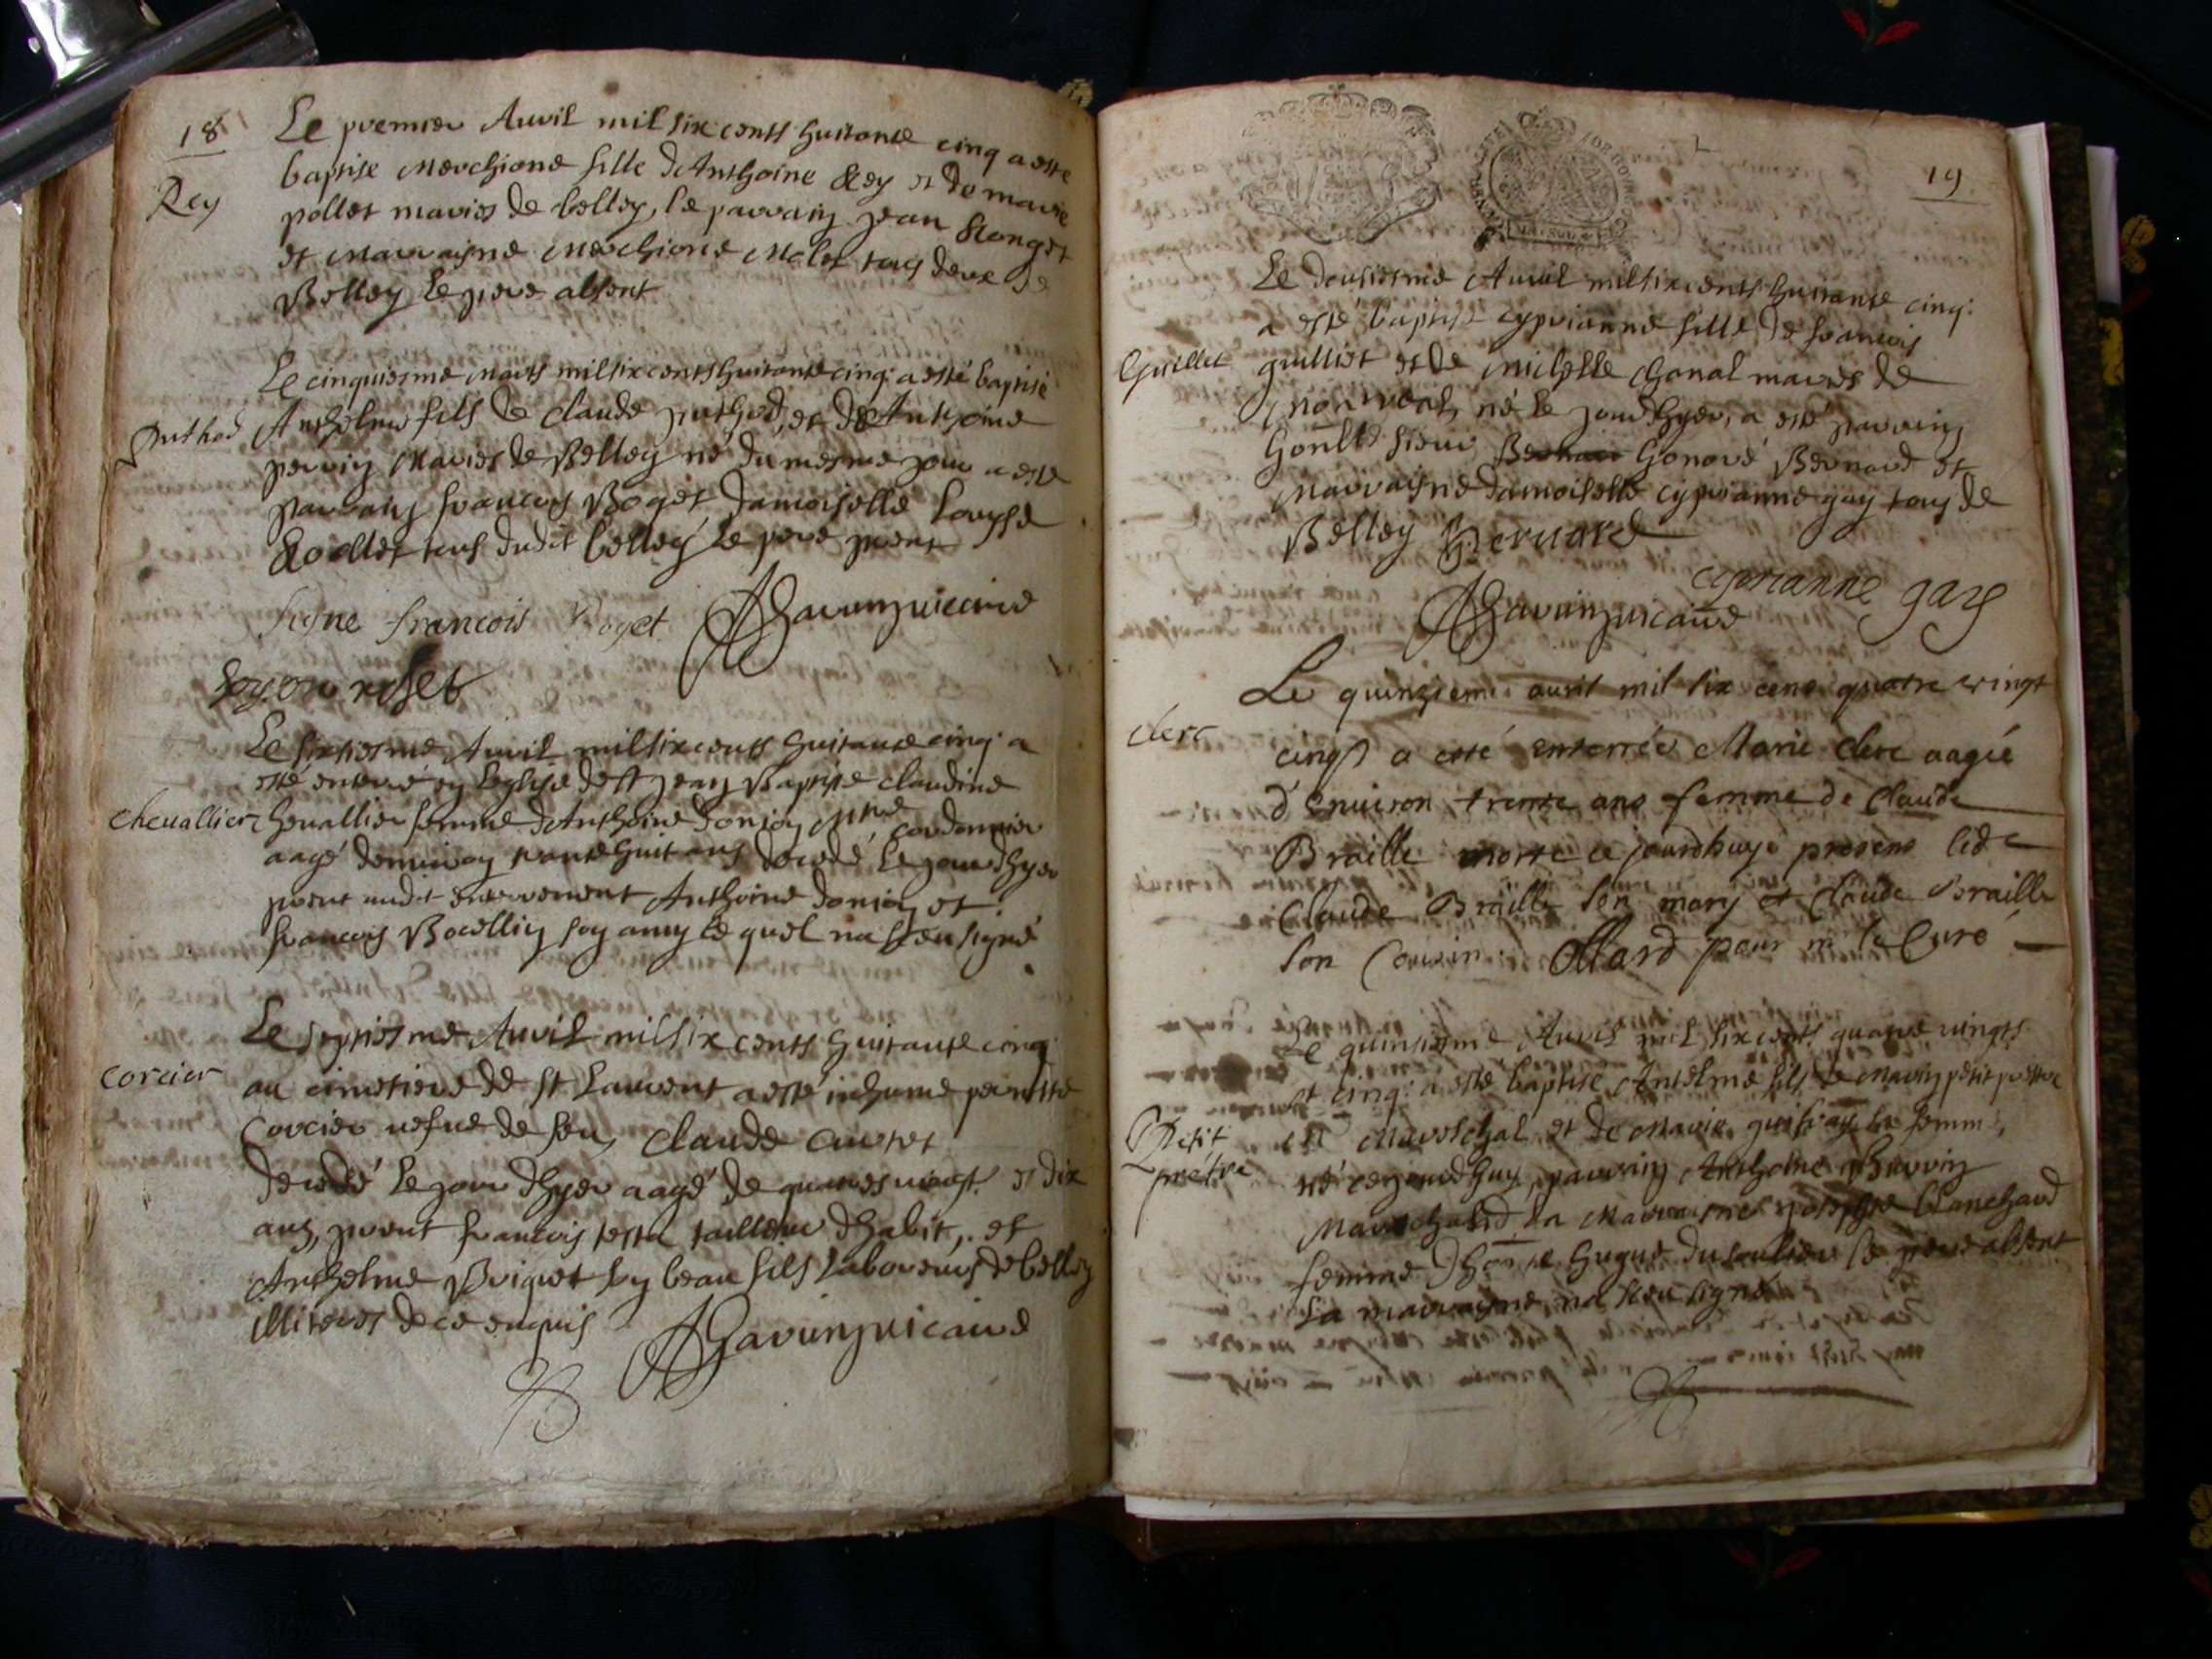 18
Rey
Le premier Auvil mil six cents huitante cinq a esté
baptise Merchione fille d'Anthoine Rey et de marie
pollet mariés de belley, le parrain jean Ronget
et marrayne Merchione Molet tous deux de
Belley le pere absent
Le cinquiesme mars mil six cents huitante cinq a esté baptisé
Puthod
Anthelme fils de claude puthod, et d'Anthoine
perrin mariés de Belley né du mesme jour a esté
parrain francois Boget damoiselle Louyse
Rosllet tous dudit belley le pere pnent
signe francois Boget
AGavinzvicaire
Le sixiesme Auvil mil six cents huitante cinq a
esté enterré en l'eglise de st jean Baptiste claudine
cheuallier
cheuallier femme d'Anthoine donjoy mtre cordonnier
aagé denviron trante huit ans decedé le jour dhyer
pnent audit enterrement Anthoine donjoy et
francois Bocllin son amy lequel na sceu signé
Le septiesme Auvil mil six cents huitante cinq
corcier
au cimetiere de st Laurent a esté inhume pernette
Corcier vefue de feu claude Curtet
decedé le jour dhyer aagé de quatres vingt et dix
ans, pnent francois testa tailleur dhabit, et
Anthelme Briquet son beau fils laboreurs de belley
illiteres de ce enquis
AGavinzvicaire
19
Le deusiesme Auvil mil six cents huitante cinq
a esté baptise cyprianne fille de francois
Guillet
guilliet et de micelle Chanal mariés de
né le jour dhyer, a esté parrain
honble sieur honoré Bernard et
marrayne damoiselle cyprianne gay tous de
Belley Bernard
cyprianne gay
AGavinzvicaire
Le quinziemé auril mil six cens quatre vingt
clerc
cinq a esté enterrée Marie clerc aagée
d'enuiron trente ans femme de Claude
Braille morte ce jourdhuy presens led
Claude Braille son mary et Claude Braille
son Cousin Ollard pour mr le Curé
Le quinsiesme Auvil mil six cents quatre vingts
et cinq a esté baptise Anselme fils de Marin petit prettre
Petit
prétre
mareschal et de Marie sa femme,
né ce jourdhuy, parrain Anthoine Perrin
mareschal, la marrayne josephte blanchard
femme d'hon le hugue du soulier le pere absent
La marrayne na sceu signé